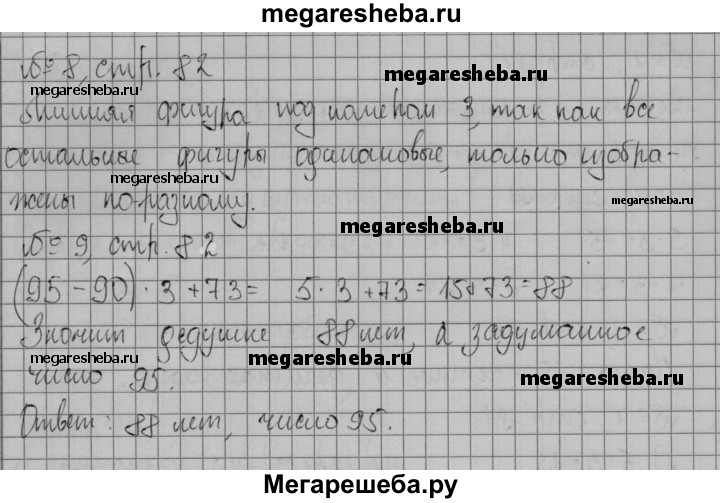 megaresheba.ru
№ 8, стр. 82
megaresheba.ru
megaresheba.ru
Лишняя фигура под номером 3, так как все
остальные фигуры одинаковые, только изобра-
megaresheba.ru
megaresheba.ru
жены по-разному.
megaresheba.ru
№ 9, стр. 82
(95 - 90) · 3 + 73 = 5 · 3 + 73 = 15 + 73 = 88
Значит дедушке 88 лет, а задуманное
megaresheba.ru
megaresheba.ru
число 95.
megaresheba.ru
Ответ: 88 лет, число 95.
Мегарешеба.ру